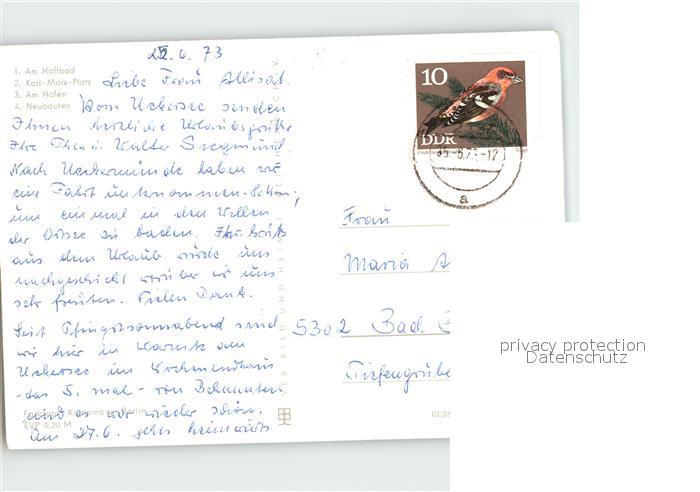 22.6.73
1. Am Haffbad
2. Karl-Marx-Platz
3. Am Hafen
4. Neubauten
Liebe Frau Allisat.
Vom Uckersee senden
Ihnen herzliche Urlaubsgrüße
Ihre Thea u. Walter Siegmund.
Nach Ueckermünde haben wir
eine Fahrt unternommen
um einmal in den Wellen
der Ostsee zu baden. Ihr Gruß
aus dem Urlaub wurde uns
nachgeschickt worüber wir uns
sehr freuten. Vielen Dank.
Seit Pfingstsonnabend sind
wir hier in Warnitz am
Uckersee im Wochenendhaus
- das 5. mal - von Bekannten
und es war wieder schön.
Am 27.6. gehts heimwärts
EVP 0,20 M
BILD UND HEIM
III/26
10
DDR
6.73-12
a
Frau
Maria A
5302 Bad
Tiefengrube
privacy protection
Datenschutz